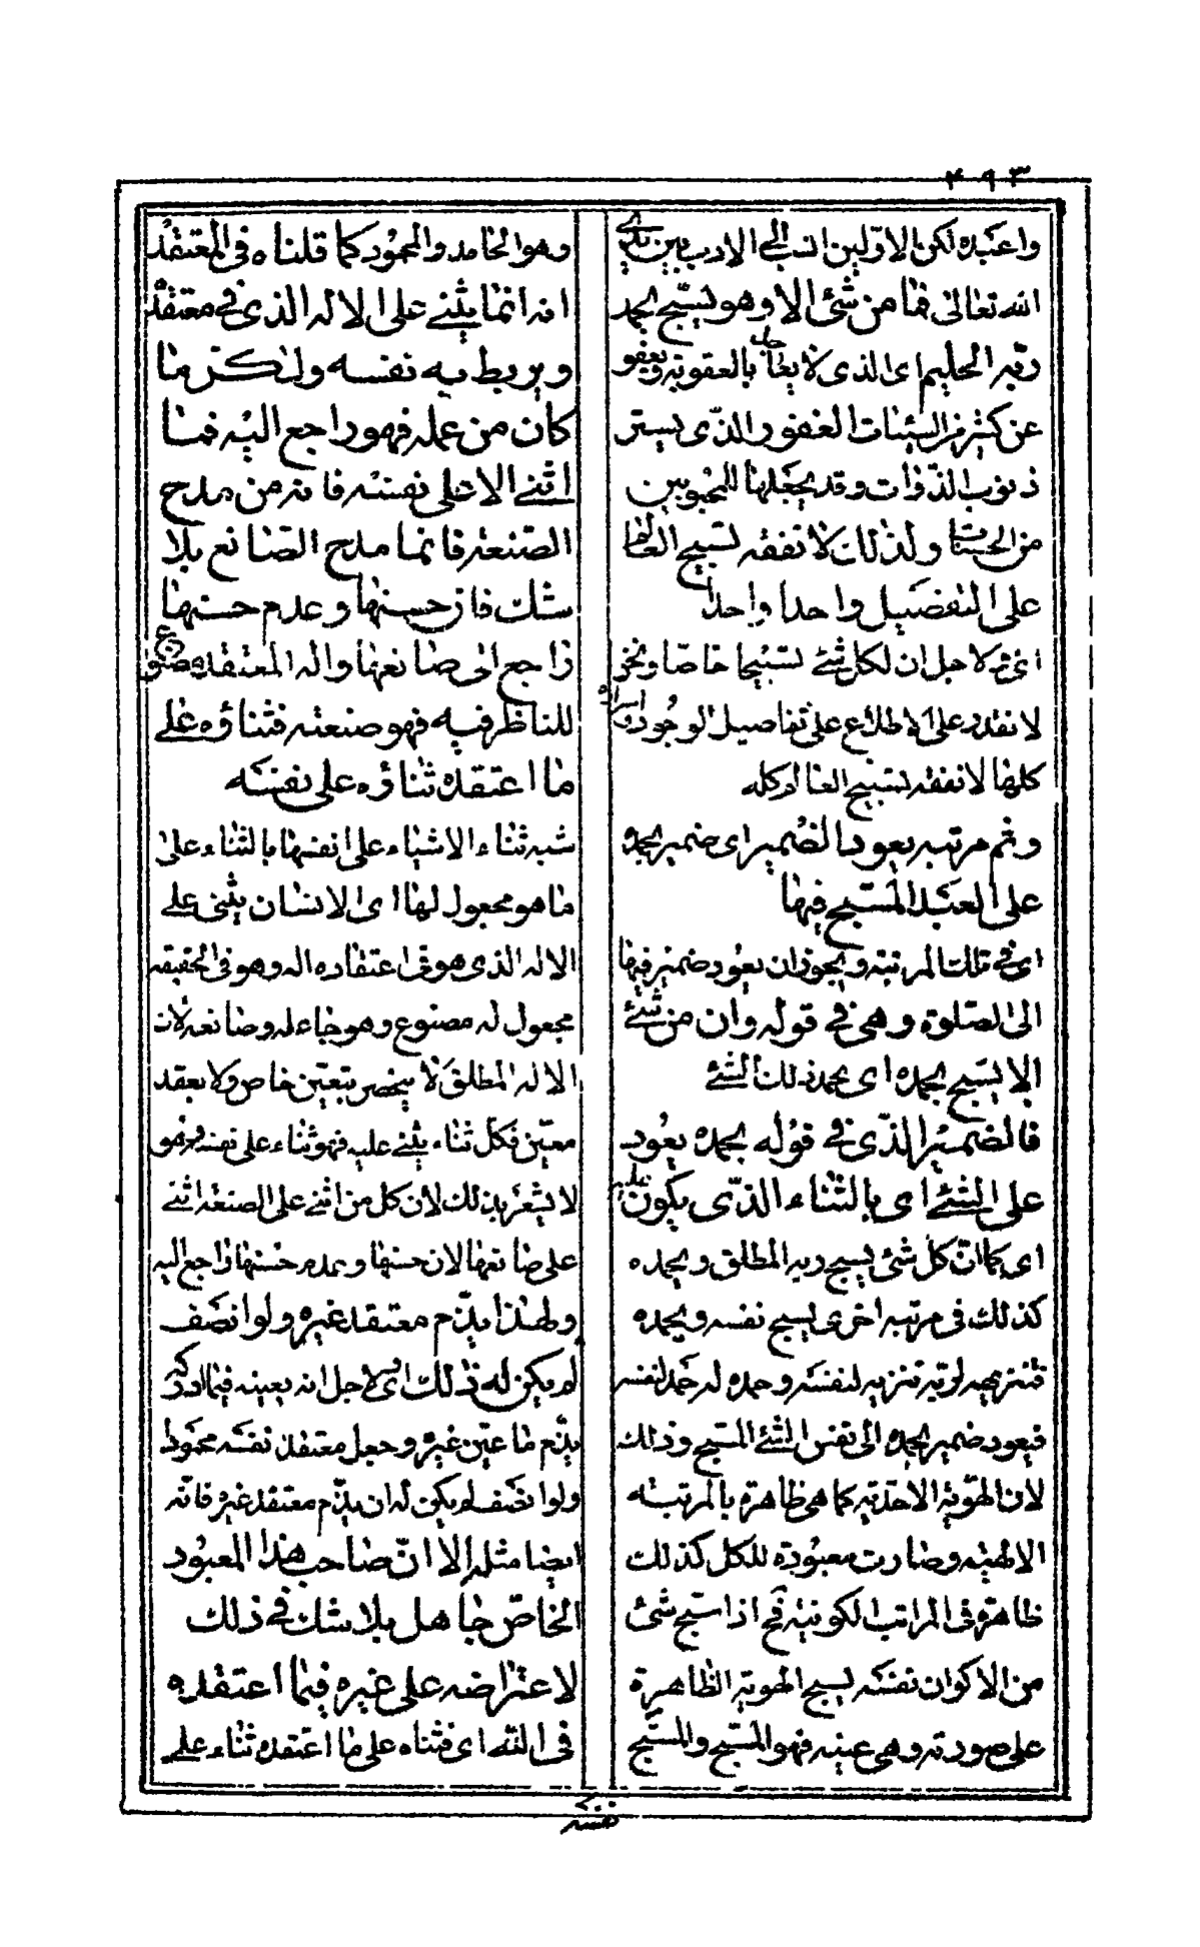 ۴۹۳
واعبده لكن الاولين انسب الى الادب بين يدى
الله تعالى فما من شئ الا وهو يسبح بحمد
ربه الحليم اى الذى لا يعاجل بالعقوبة ويعفو
عن كثير من السيئات الغفور الذى يستر
ذنوب الذوات وقد يجعلها للمحبوبين
من الحسنات ولذلك لا نفقه تسبيح العالم
على التفصيل واحدا واحدا
اى لاجل ان لكل شئ تسبيحا خاصا ونحن
لا نقدر على الاطلاع على تفاصيل الوجود واسراره
كلها لا نفقه تسبيح العالم كله
وثم مرتبه يعود الضمير اى ضمير بحمده
على العبد المسبح فيها
اى فى تلك المرتبة ويجوز ان يعود ضمير فيها
الى الصلوة وهى فى قوله وان من شئ
الا يسبح بحمده اى بحمد ذلك الشئ
فالضمير الذى فى قوله بحمده يعود
على الشئ اى بالثناء الذى يكون عليه
اى كما ان كل شئ يسبح ربه المطلق ويحمده
كذلك فى مرتبه اخرى يسبح نفسه ويحمده
فتنزيهه لربه تنزيه لنفسه وحمده له حمد لنفسه
فيعود ضمير بحمده الى نفس الشئ المسبح وذلك
لان الهوية الاحدية كما هى ظاهرة بالمرتبه
الالهيه وصارت معبودة للكل كذلك
ظاهرة فى المراتب الكونية فح اذا سبح شئ
من الاكوان نفسه يسبح الهوية الظاهرة
على صورته وهى عينه فهو المسبح والمسبح
وهو الحامد والمحمود كما قلناه فى المعتقد
انه انما يثنى على الاله الذى فى معتقده
وبربط به نفسه ولذكر ما
كان من عمله فهو راجع اليه فما
اثنى الا على نفسه فانه من مدح
الصنعة فانما مدح الصانع بلا
شك فان حسنها وعدم حسنها
راجع الى صانعها واله المعتقد مصنوع
للناظر فيه فهو صنعته فثناؤه على
ما اعتقده ثناؤه على نفسه
شبه ثناء الاشياء على انفسها بالثناء على
ما هو مجعول لها اى الانسان يثنى على
الاله الذى هو فى اعتقاده اله وهو فى الحقيقه
مجعول له مصنوع وهو جاعله وصانعه لان
الاله المطلق لا ينحصر بتعين خاص ولا بعقد
معين فكل ثناء يثنى عليه فهو ثناء على نفسه وهو
لا يشعر بذلك لان كل من اثنى على الصنعة اثنى
على صانعها لان حسنها وعدم حسنها راجع اليه
ولهذا يذم معتقد غيره ولو انصف
لم يكن له ذلك اى لاجل انه يعينه فيما ادركه
يذم ما عين غيره وجعل معتقد نفسه محمودا
ولو انصف لم يكن له ان يذم معتقد غيره فانه
ايضا مثله الا ان صاحب هذا المعبود
الخاص جاهل بلا شك فى ذلك
لاعتراضه على غيره فيما اعتقده
فى الله اى فثناه على ما اعتقده ثناء على
نفسه